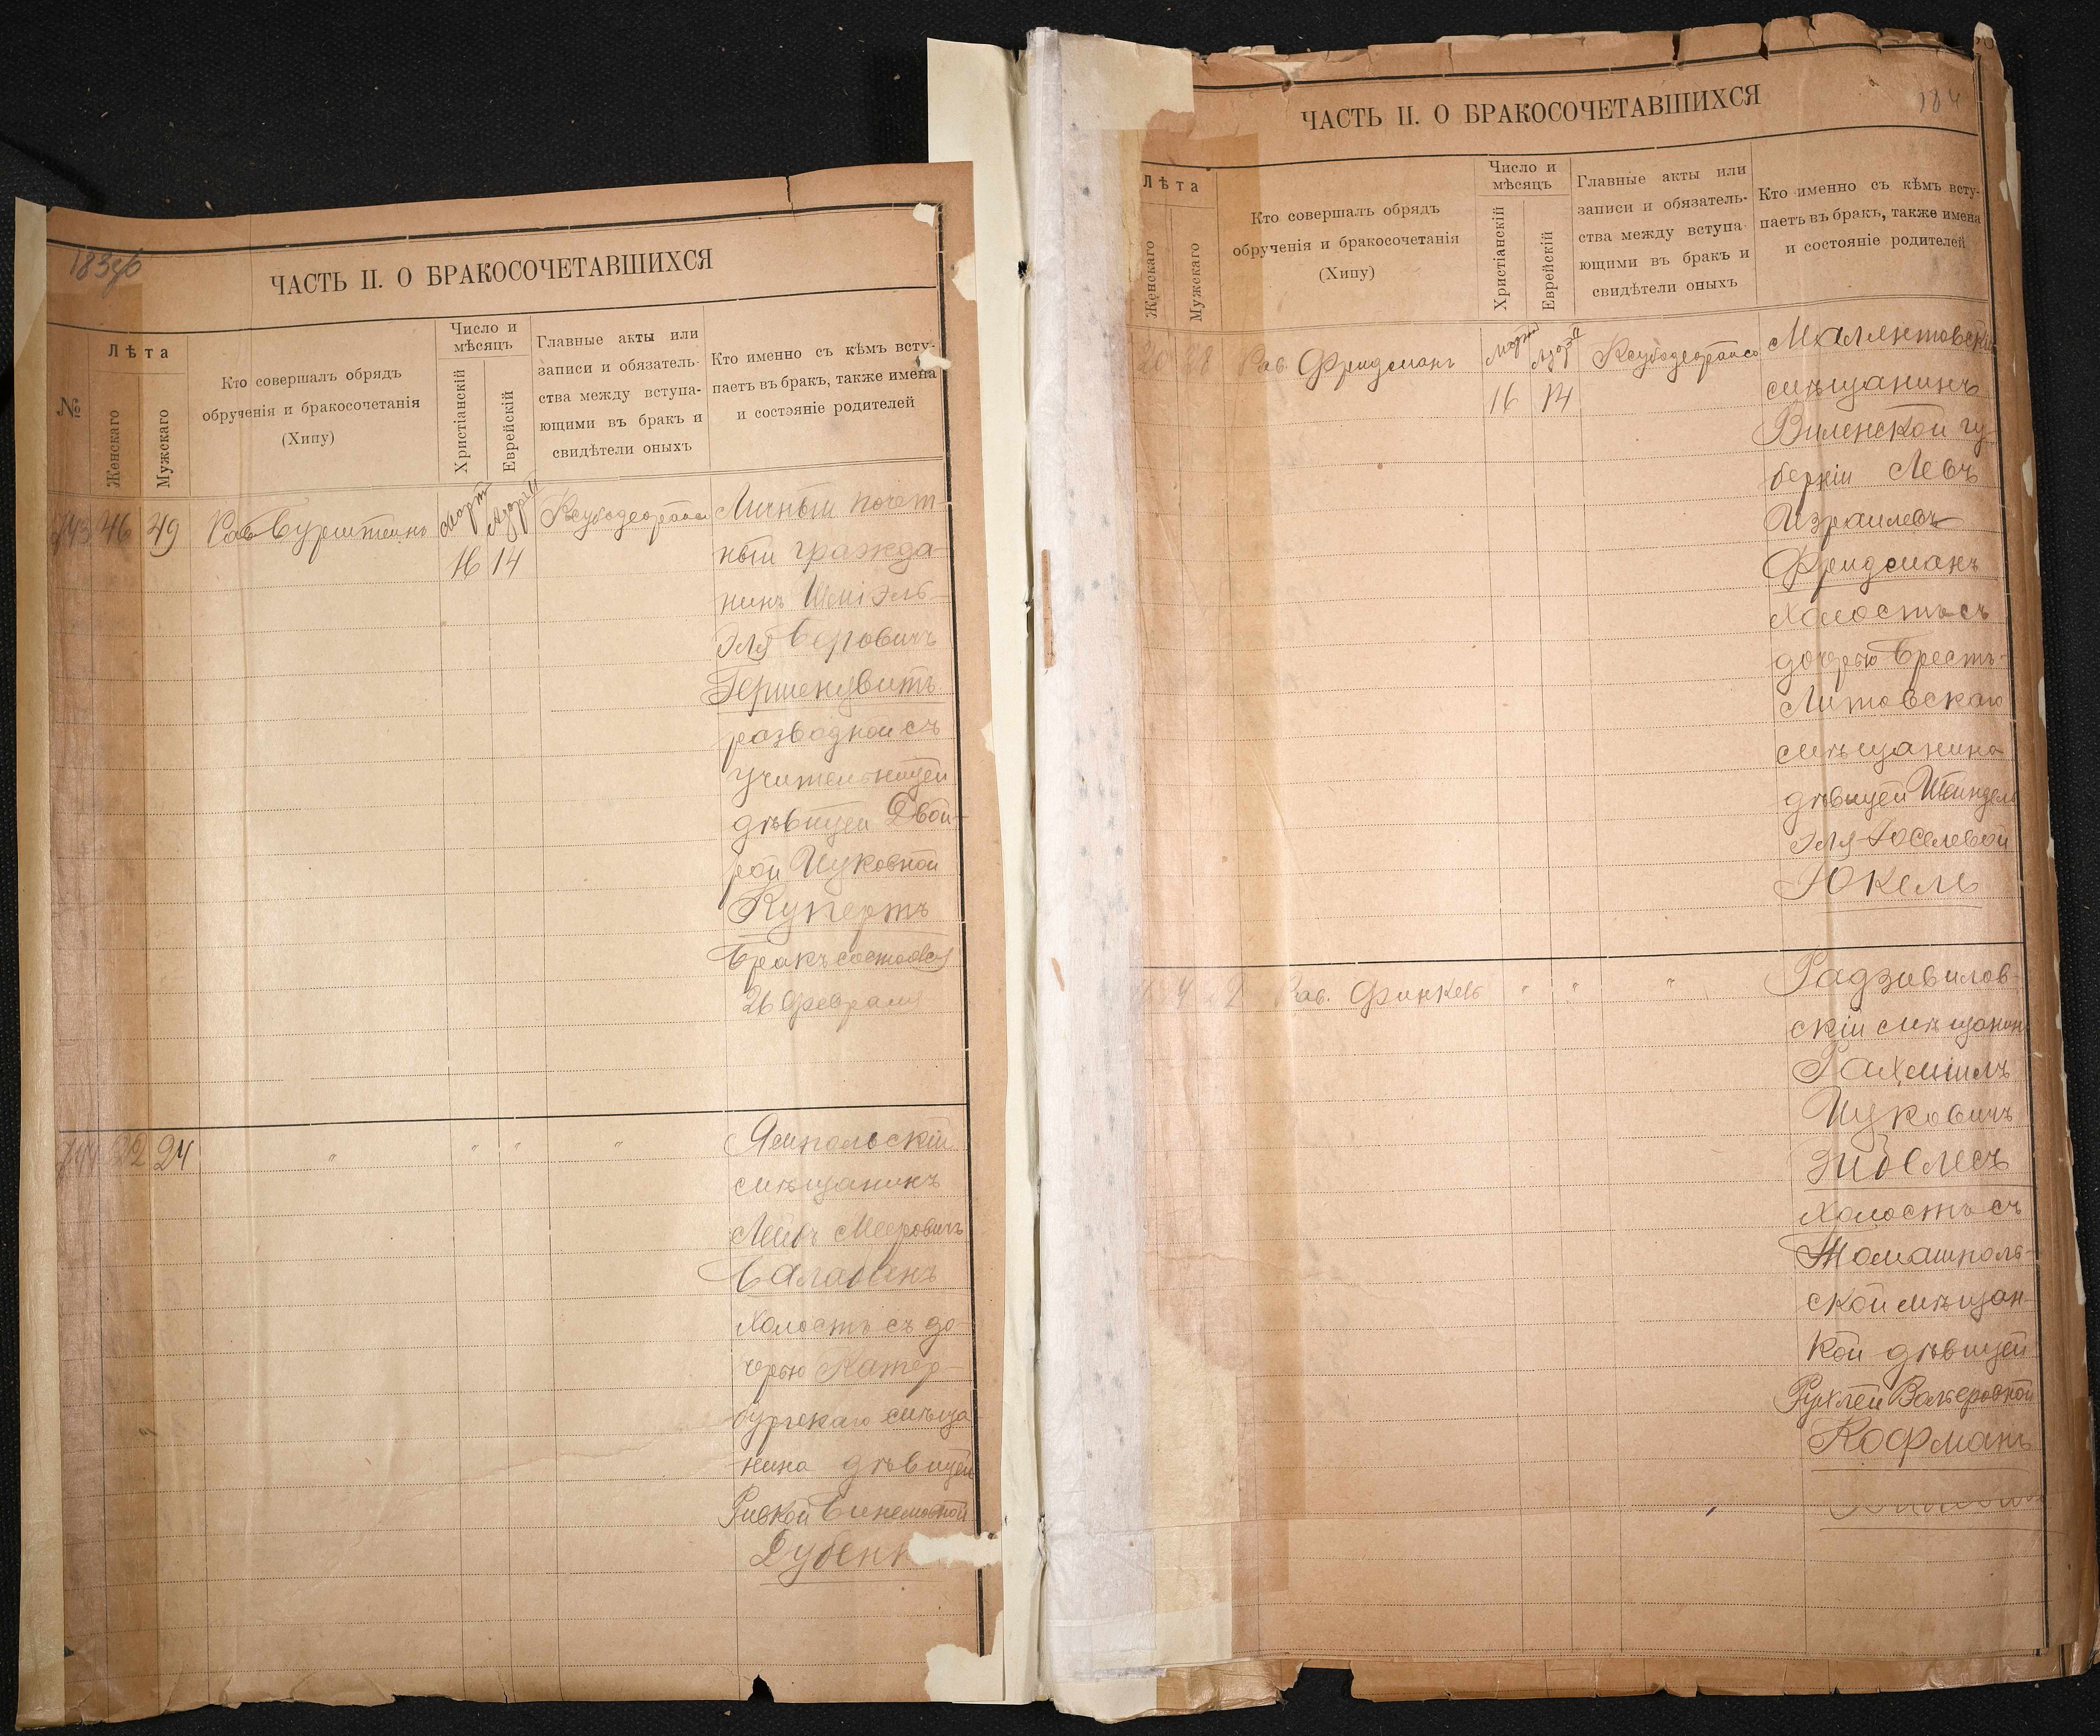 183об
ЧАСТЬ II. О БРАКОСОЧЕТАВШИХСЯ
№
Лѣта
Женскаго
Мужскаго
Кто совершалъ обрядъ
обрученія и бракосочетанія
(Хипу)
Число и
мѣсяцъ
Христіанскій
Еврейскій
Главные акты или
записи и обязатель-
ства между вступа-
ющими въ бракъ и
свидѣтели оныхъ
Кто именно съ кѣмъ всту-
паетъ въ бракъ, также имена
и состояніе родителей
46 49 Рав Бурштейнъ Март
16 14
Личный почет-
ный гражда-
нинъ Шміэль-
Эля Беровичъ
Гершензвитъ
разводной съ
учительницей
дѣвицей Двой-
рой Ицковной
Купертъ
Бракъ состоялся
26 Февраля
22 24 " " " "
Ямпольскій
мѣщанинъ
Лейбъ Мееровичъ
Балабенъ
холостъ съ до-
черью Катер-
бургскаго мѣща-
нина дѣвицей
Ривкой
Дубенк
184
ЧАСТЬ II. О БРАКОСОЧЕТАВШИХСЯ
Лѣта
Женскаго
Мужскаго
Кто совершалъ обрядъ
обрученія и бракосочетанія
(Хипу)
Число и
мѣсяцъ
Христіанскій
Еврейскій
Главные акты или
записи и обязатель-
ства между вступа-
ющими въ бракъ и
свидѣтели оныхъ
Кто именно съ кѣмъ всту-
паетъ въ бракъ, также имена
и состояніе родителей
20 28 Рав. Фридманъ Март
16 14
мѣщанинъ
Виленской гу-
берніи Левъ
Израилевъ
Фридманъ
холостъ съ
дочерью Брестъ-
Литовскаго
мѣщанина
дѣвицей Шейндель
Эля-Іоселевой
Юкель
Рав. Финкель " " "
Радзивилов-
скій мѣщанин
Рахмиль
Ицковичъ
Зиселесъ
холостъ съ
Томашполь-
ской мѣщан-
кой дѣвицей
Рухлей Вольфовной
Кофманъ